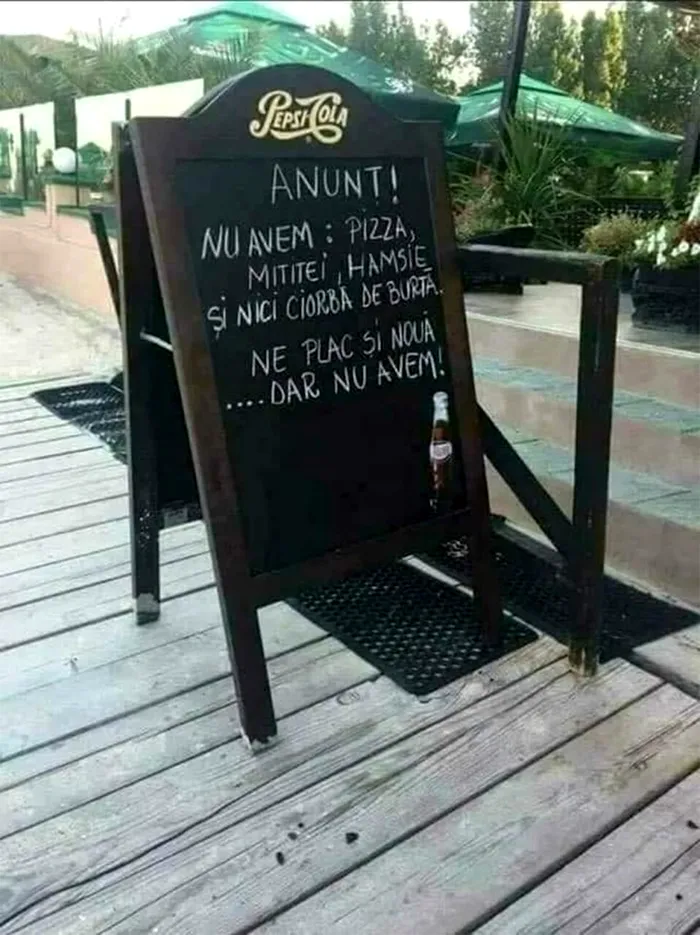 PEPSI-COLA
ANUNT!
NU AVEM : PIZZA,
MITITEI, HAMSIE
ȘI NICI CIORBĂ DE BURTĂ.
NE PLAC ȘI NOUĂ
....DAR NU AVEM!